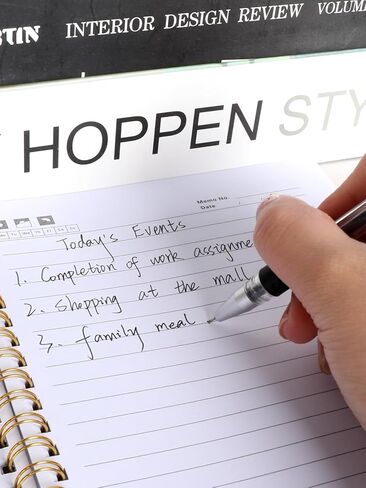 INTERIOR DESIGN REVIEW VOLUM
HOPPEN STY
Memo No.
Date
Today's Events
1. Completion of work assignme
2. Shopping at the mall
3. family meal